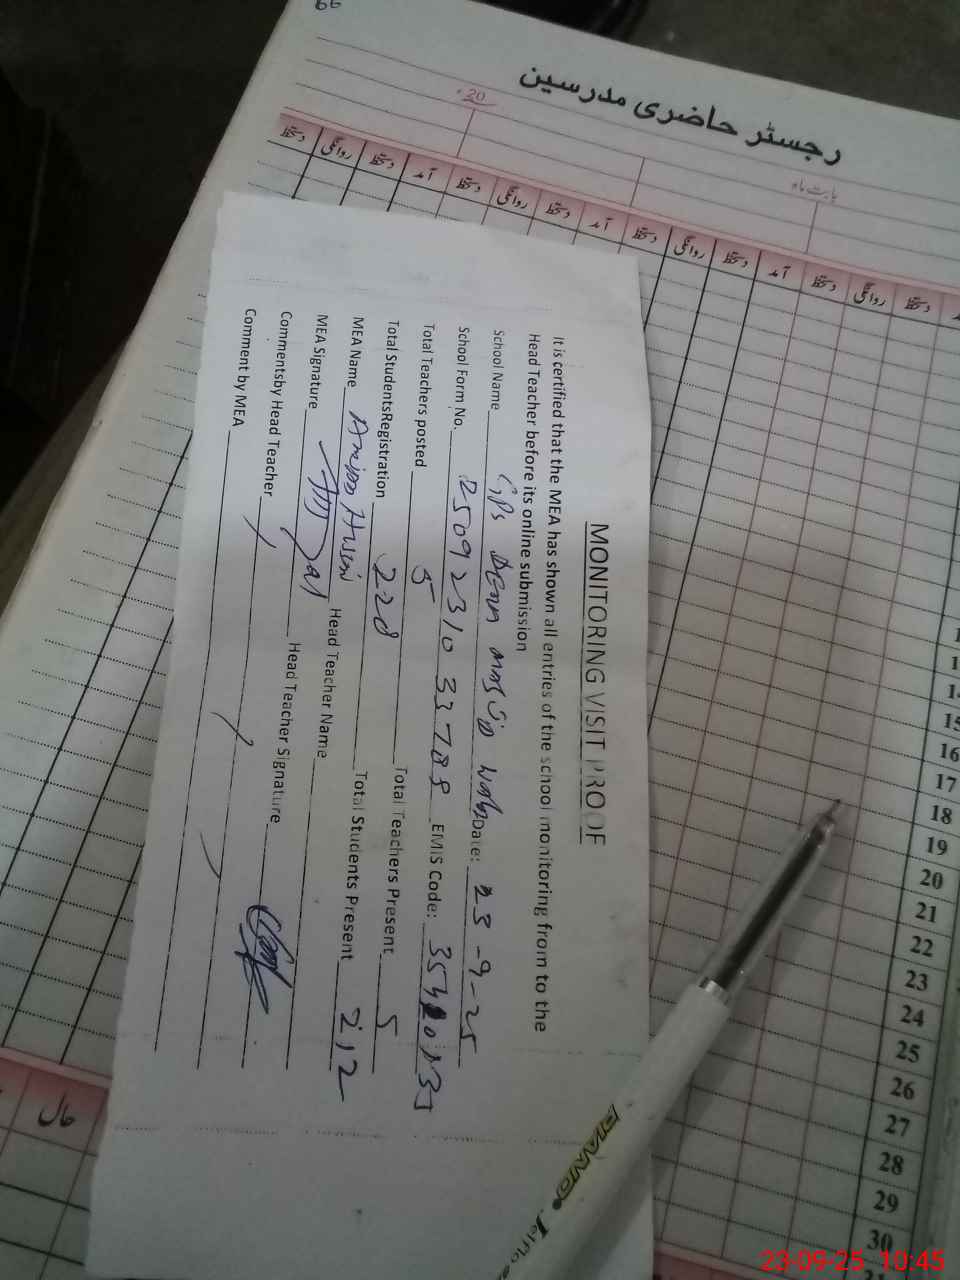 66
رجسٹر حاضری مدرسین
20ء
بابت ماہ
دستخط آمد دستخط روانگی دستخط آمد دستخط روانگی دستخط آمد دستخط روانگی دستخط آمد دستخط روانگی دستخط
MONITORING VISIT PROOF
It is certified that the MEA has shown all entries of the school monitoring from to the
Head Teacher before its online submission
School Name GPS Date: 23-9-25
School Form No. 2509231033788 EMIS Code:
Total Teachers posted 5 Total Teachers Present 5
Total StudentsRegistration 228 Total Students Present 212
MEA Name Head Teacher Name
MEA Signature Head Teacher Signature
Commentsby Head Teacher
Comment by MEA
14
15
16
17
18
19
20
21
22
23
24
25
26
27
28
29
30
حال
PIANO
23-09-25 10:45